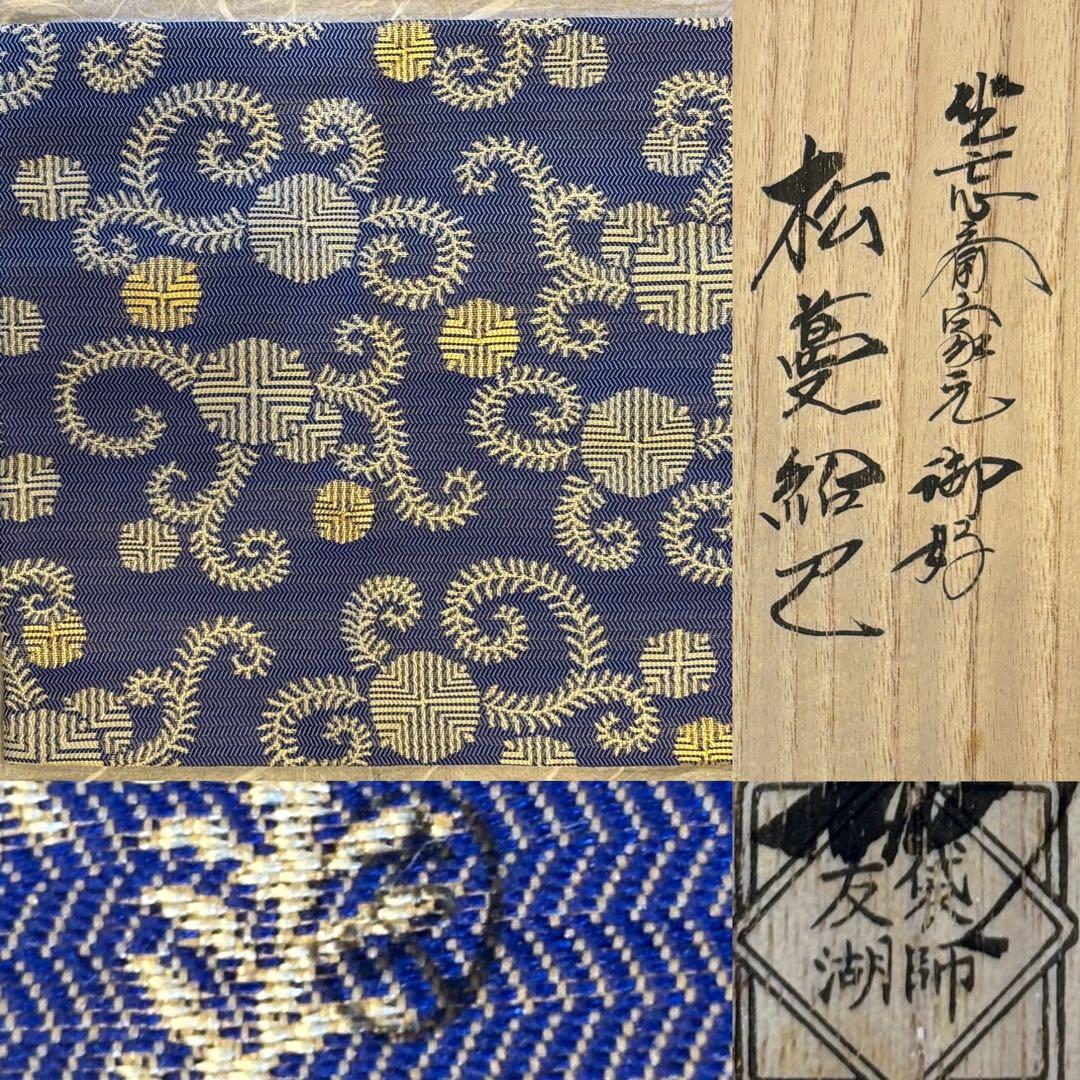 坐忘斎家元御好
松蔓紹巴
袋師
友湖